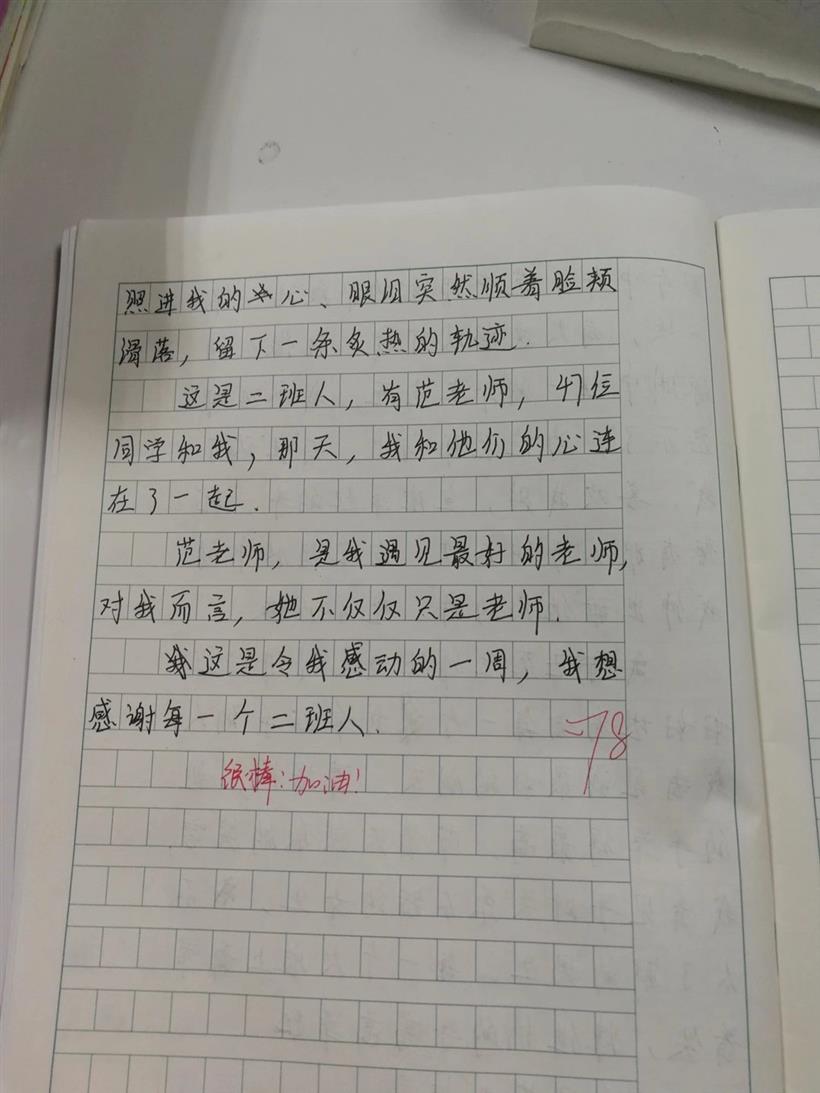 照进我的心、眼泪突然顺着脸颊
滑落，留下一条炙热的轨迹.
这是二班人，有范老师，47位
同学和我，那天，我和他们的心连
在了一起.
范老师，是我遇见最好的老师，
对我而言，她不仅仅只是老师.
这是令我感动的一周，我想
感谢每一个二班人.
78
很棒！加油！